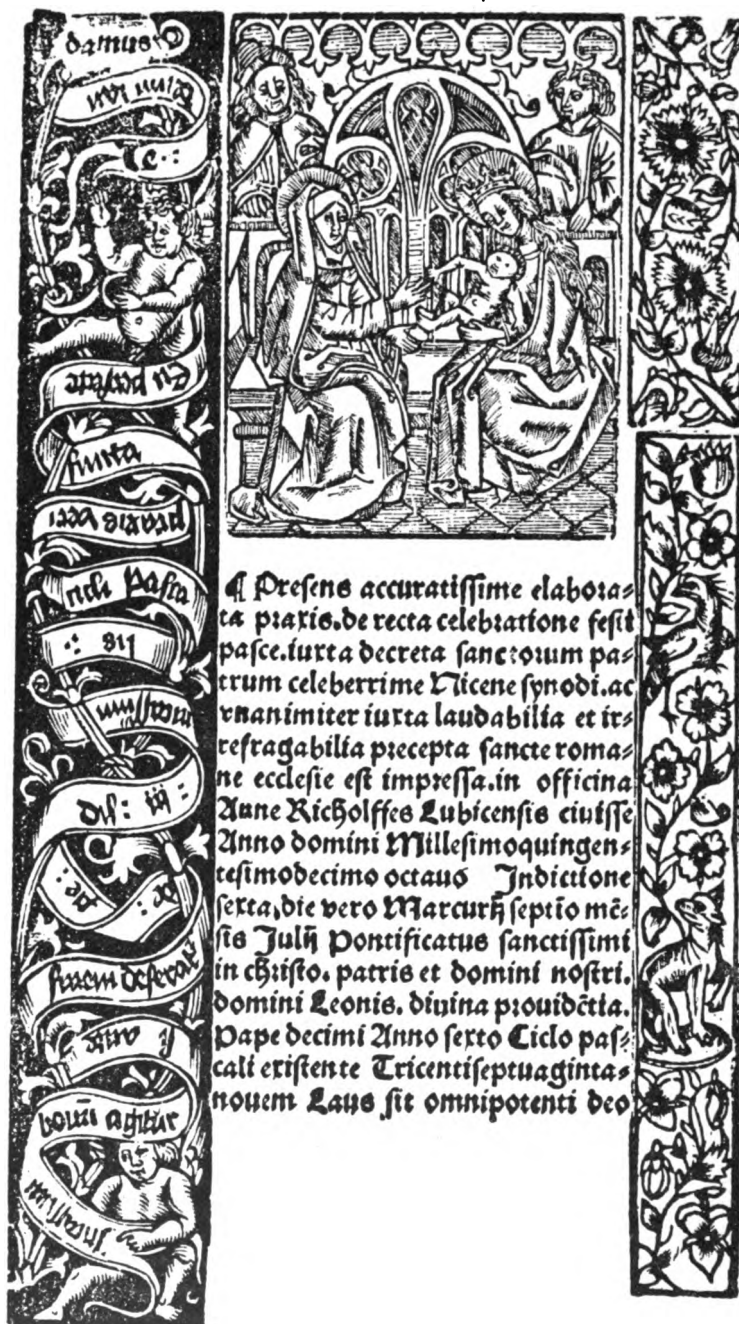 damus
te .:
finita
praxis veri
cicli Pasca
lis .:
¶ Presens accuratissime elabora⸗
ta praxis.de recta celebratione festi
pasce.iuxta decreta sanctorum pa⸗
trum celeberrime Nicene synodi.ac
vnanimiter iuxta laudabilia et ir⸗
refragabilia precepta sancte roma⸗
ne ecclesie est impressa.in officina
Anne Richolffes Lubicensis ciuisse
Anno domini Millesimoquingen⸗
tesimodecimo octauo Indictione
sexta,die vero Marcurij septio mē⸗
sis Julij Pontificatus sanctissimi
in christo. patris et domini nostri.
domini Leonis. diuina prouidētia.
Pape decimi Anno sexto Ciclo pas⸗
cali existente Tricentiseptuaginta⸗
nouem Laus sit omnipotenti deo